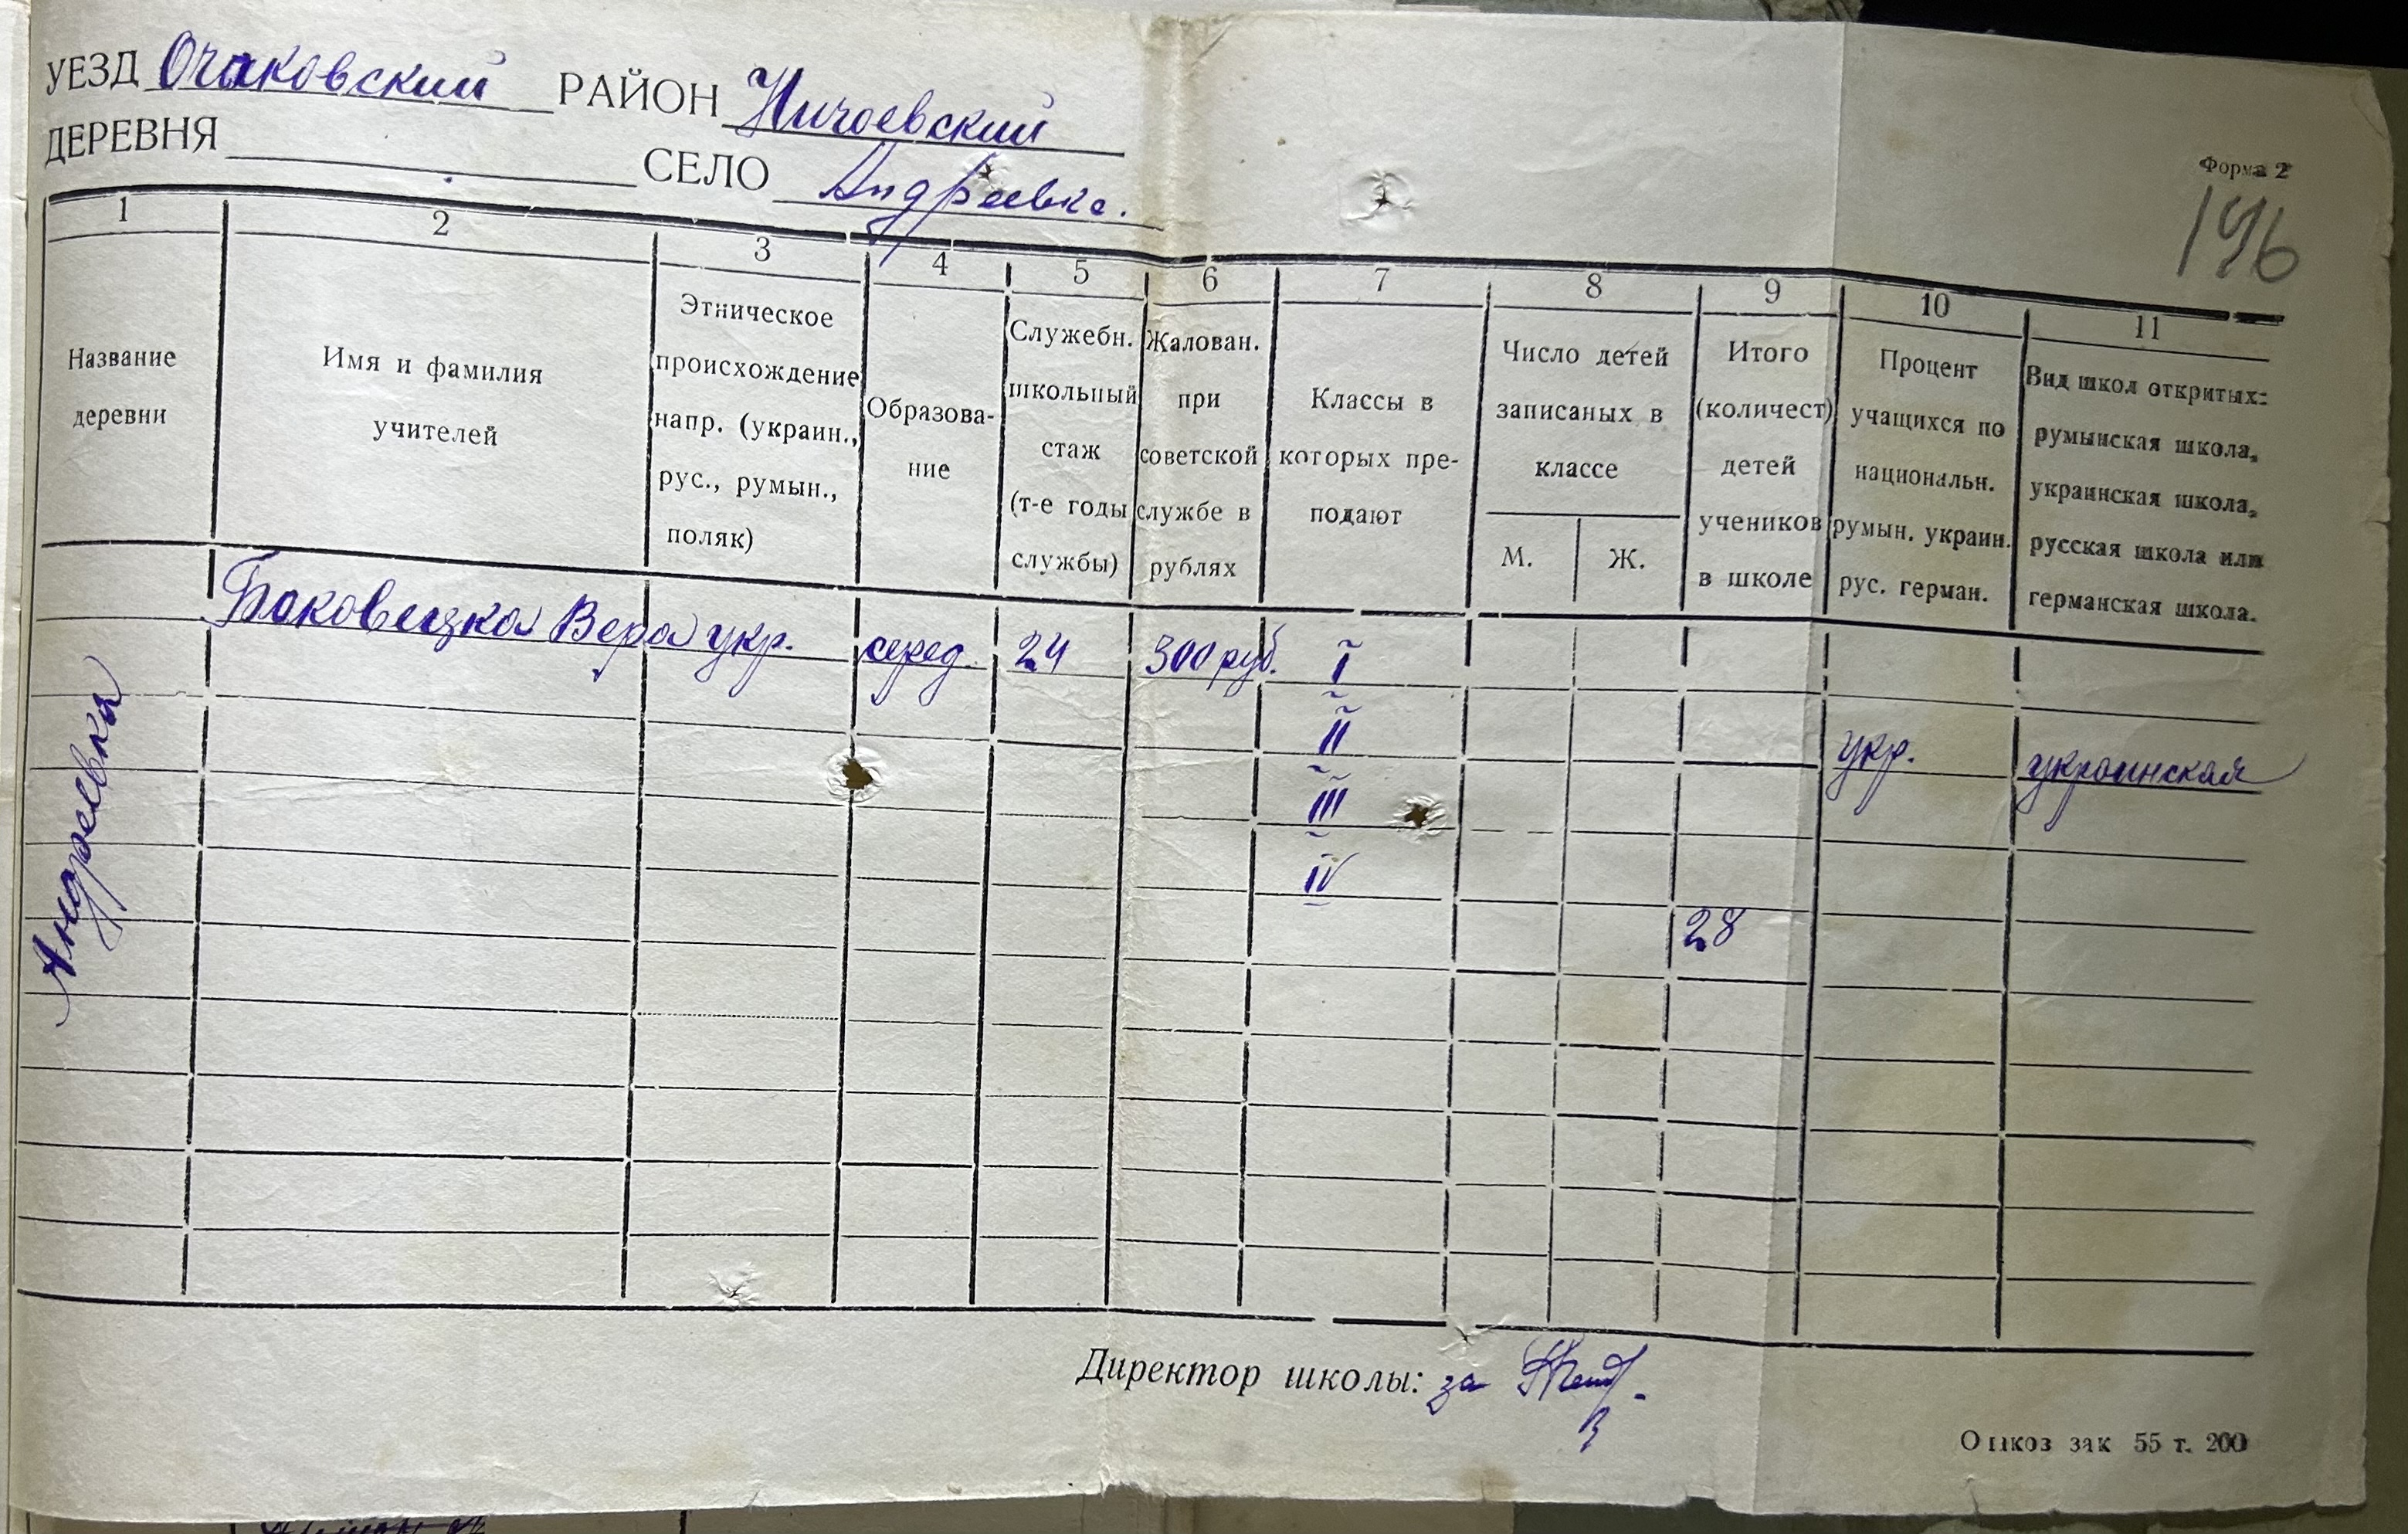 УЕЗД Очаковский РАЙОН Ничаевский
ДЕРЕВНЯ СЕЛО Андреевка.
Форма 2
196
1 2 3 4 5 6 7 8 9 10 11
Название
деревни
Имя и фамилия
учителей
Этническое
происхождение
напр. (украин.,
рус., румын.,
поляк)
Образова-
ние
Служебн.
школьный
стаж
(т-е годы
службы)
Жалован.
при
советской
службе в
рублях
Классы в
которых пре-
подают
Число детей
записаных в
классе
М. Ж.
Итого
(количест)
детей
учеников
в школе
Процент
учащихся по
национальн.
румын. украин.
рус. герман.
Вид школ откритых:
румынская школа,
украинская школа,
русская школа или
германская школа.
Андреевка
Баковецка Вера укр. серед. 24 300 руб. I
II
укр. украинская
III
IV
28
Директор школы: за
зак 55 т. 200